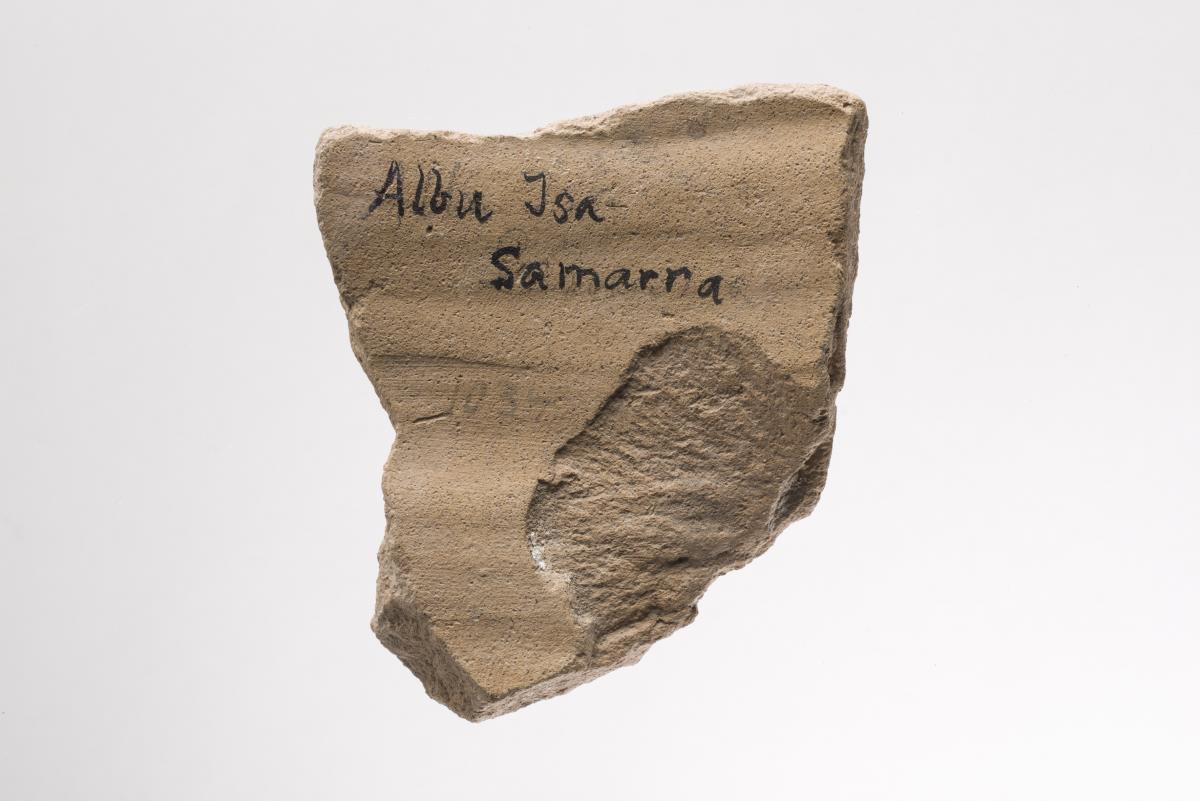 Albu Isa
Samarra